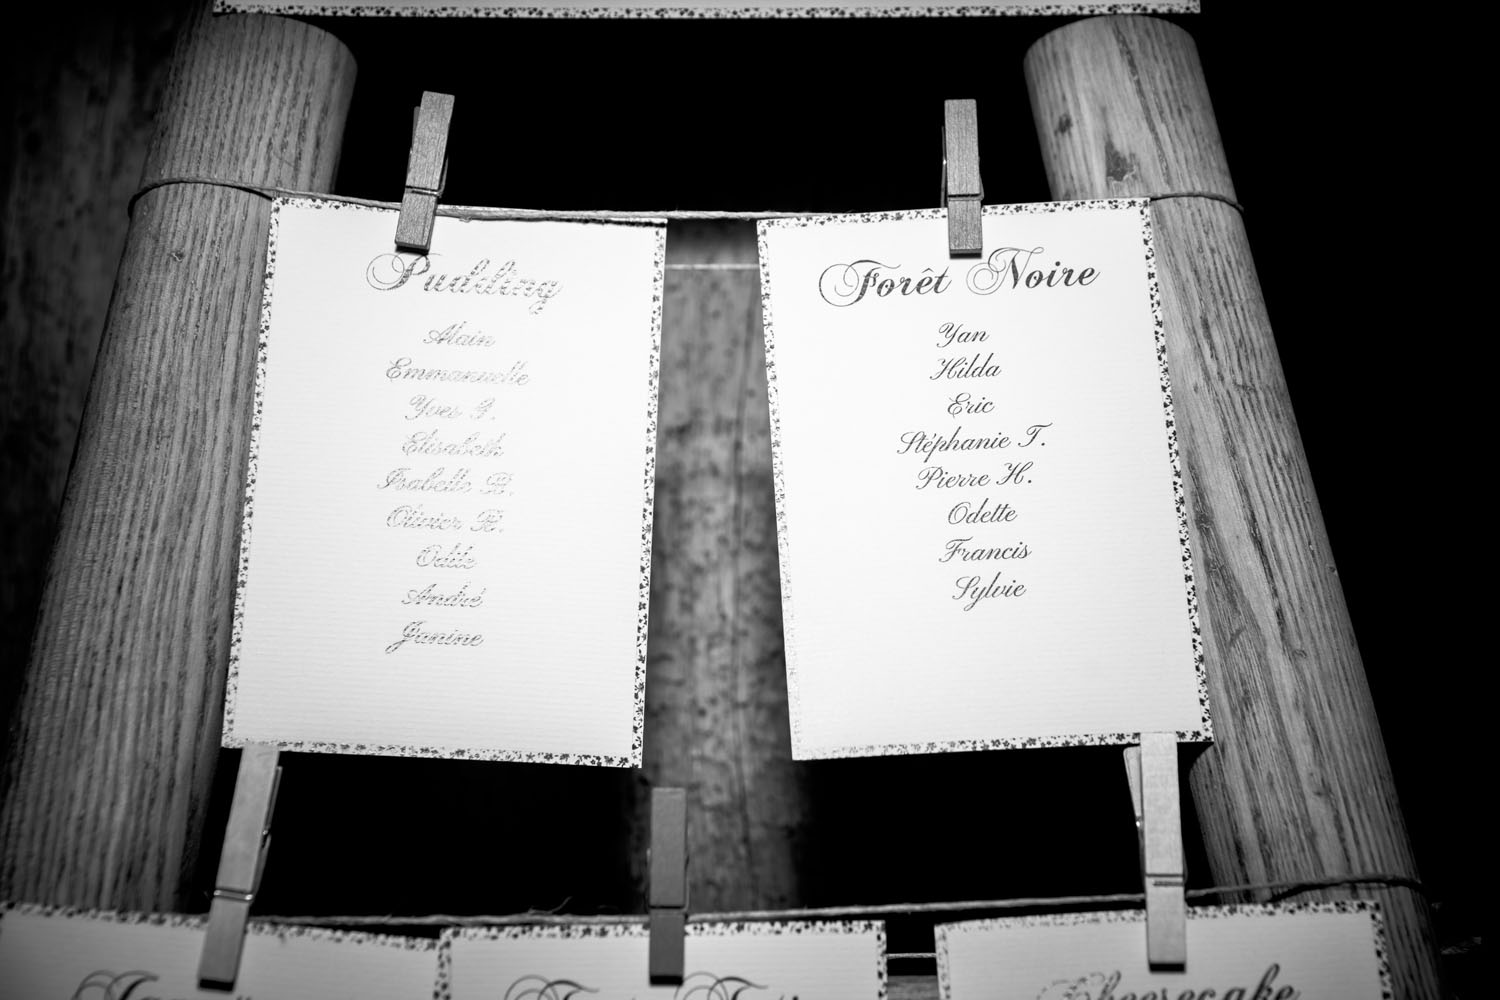 Pudding
Alain
Emmanuelle
Yves G.
Elisabeth
Isabelle R.
Olivier R.
Odile
André
Janine
Forêt Noire
Yan
Hilda
Eric
Stéphanie T.
Pierre H.
Odette
Francis
Sylvie
Cheesecake